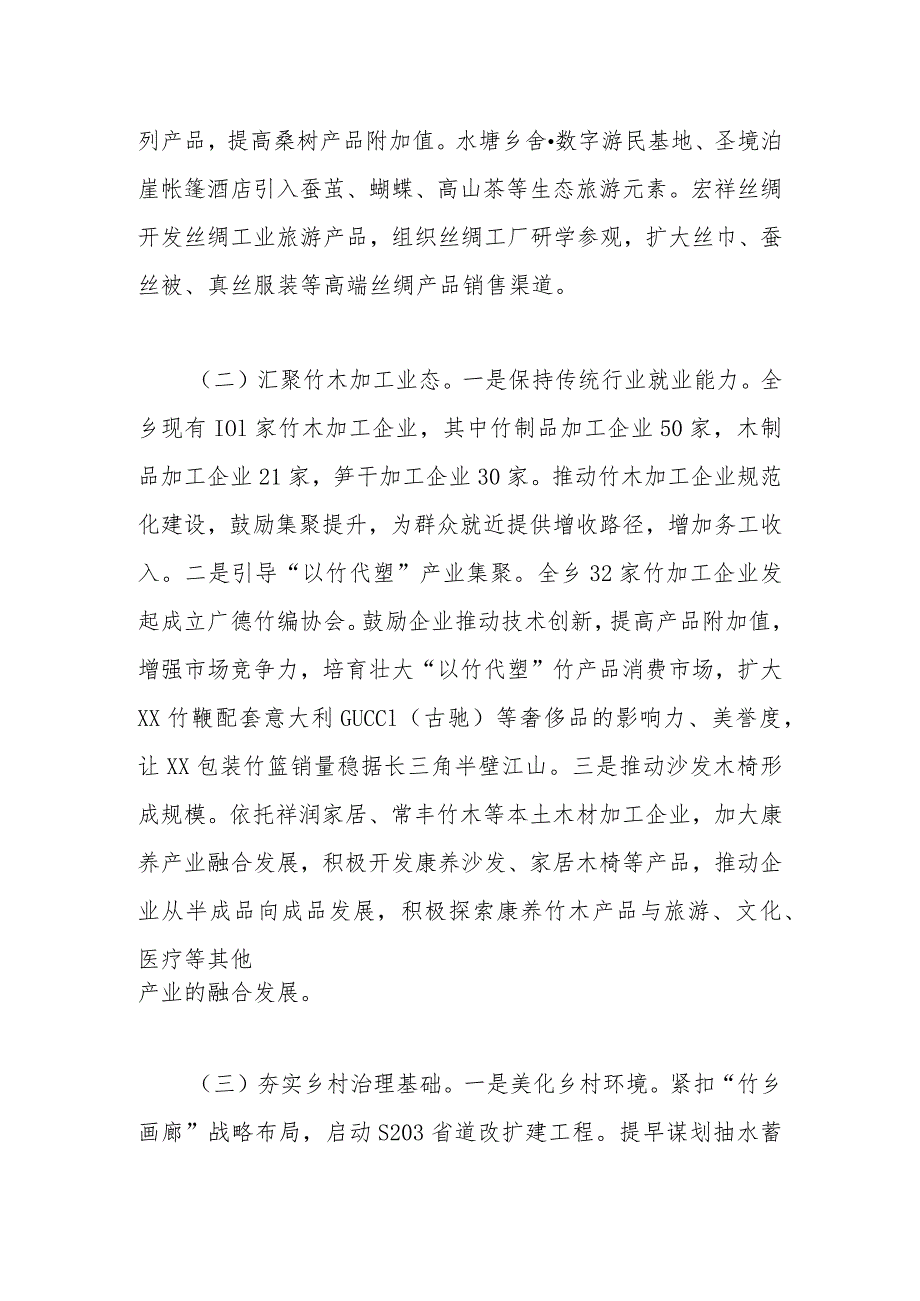 列产品，提高桑树产品附加值。水塘乡舍•数字游民基地、圣境泊
崖帐篷酒店引入蚕茧、蝴蝶、高山茶等生态旅游元素。宏祥丝绸
开发丝绸工业旅游产品，组织丝绸工厂研学参观，扩大丝巾、蚕
丝被、真丝服装等高端丝绸产品销售渠道。
（二）汇聚竹木加工业态。一是保持传统行业就业能力。全
乡现有 IOl 家竹木加工企业，其中竹制品加工企业 50 家，木制
品加工企业 21 家，笋干加工企业 30 家。推动竹木加工企业规范
化建设，鼓励集聚提升，为群众就近提供增收路径，增加务工收
入。二是引导“以竹代塑”产业集聚。全乡 32 家竹加工企业发
起成立广德竹编协会。鼓励企业推动技术创新，提高产品附加值，
增强市场竞争力，培育壮大“以竹代塑”竹产品消费市场，扩大
XX 竹鞭配套意大利 GUCCl（古驰）等奢侈品的影响力、美誉度，
让 XX 包装竹篮销量稳据长三角半壁江山。三是推动沙发木椅形
成规模。依托祥润家居、常丰竹木等本土木材加工企业，加大康
养产业融合发展，积极开发康养沙发、家居木椅等产品，推动企
业从半成品向成品发展，积极探索康养竹木产品与旅游、文化、
医疗等其他
产业的融合发展。
（三）夯实乡村治理基础。一是美化乡村环境。紧扣“竹乡
画廊”战略布局，启动 S203 省道改扩建工程。提早谋划抽水蓄